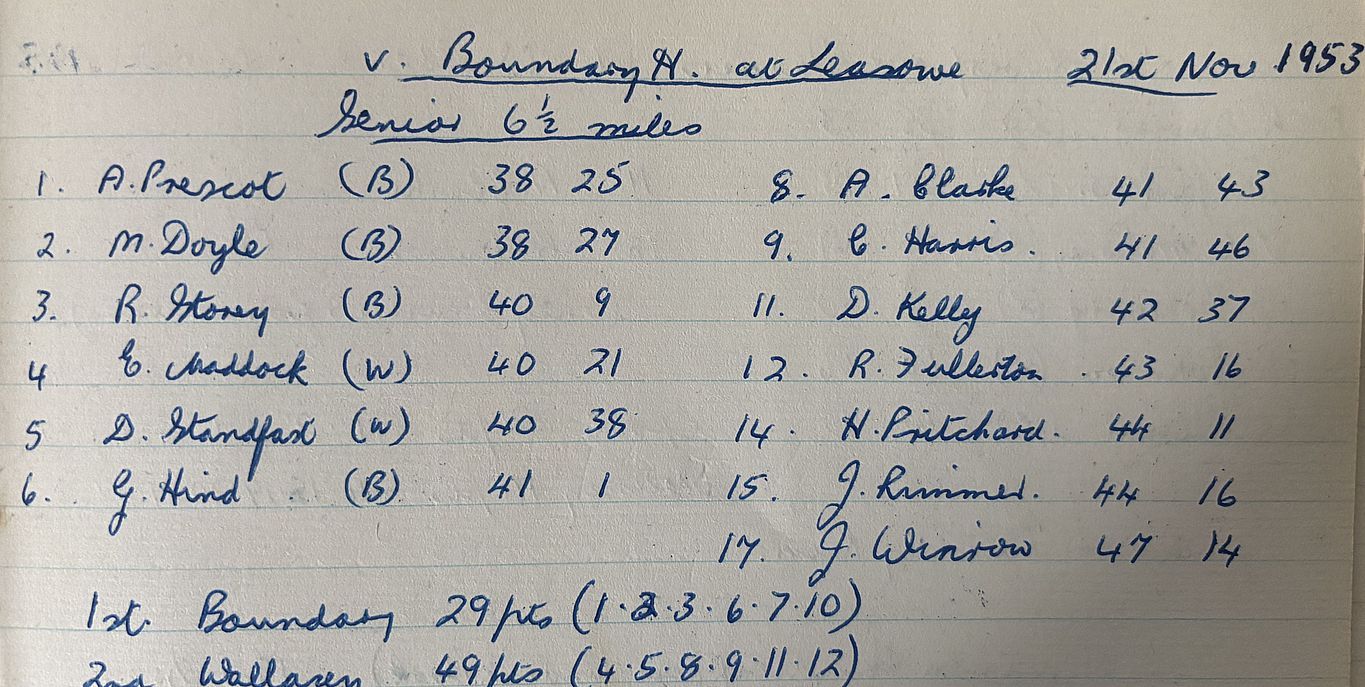 v. Boundary H. at Leasowe 21st Nov 1953
Senior 6½ miles
1. A. Prescot (B) 38 25 8. A. Clarke 41 43
2. M. Doyle (B) 38 27 9. C. Harris. 41 46
3. R. Storey (B) 40 9 11. D. Kelly 42 37
4 E. Maddock (W) 40 21 12. R. Fullerton . 43 16
5 D. Standfast (W) 40 38 14. H. Pritchard. 44 11
6. G. Hind . (B) 41 1 15. J. Rimmer. 44 16
17. J. Winrow 47 14
1st. Boundary 29 pts (1.2.3.6.7.10)
2nd Wallasey 49 pts (4.5.8.9.11.12)